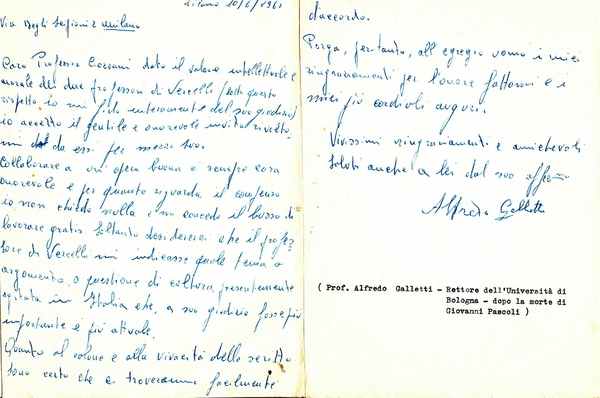 Milano 10/6/1961
Via Degli Scipioni 2 Milano
Caro Professor Corsani dato il valore intellettuale e
morale dei due professori di Vercelli (sotto questo
rispetto io mi fido interamente del suo giudizio)
io accetto il gentile e onorevole invito rivolto
mi da essi per mezzo suo.
Collaborare a un'opera buona è sempre cosa
onorevole e per quanto riguarda il compenso
io non chiedo nulla e mi concedo il lusso di
lavorare gratis. Soltanto desidererei che il profes-
sore di Vercelli mi indicasse quale tema o
argomento, o questione di coltura presentemente
agitata in Italia che, a suo giudizio fosse più
importante e più attuale.
Quanto al colore e alla vivacità dello scritto
sono certo che ci troveremo facilmente
d'accordo.
Porga, pertanto, all'egregio uomo i miei
ringraziamenti per l'onore fattomi e i
miei più cordiali auguri.
Vivissimi ringraziamenti e amichevoli
saluti anche a lei dal suo aff.mo
Alfredo Galletti
( Prof. Alfredo Galletti - Rettore dell'Università di
Bologna - dopo la morte di
Giovanni Pascoli )